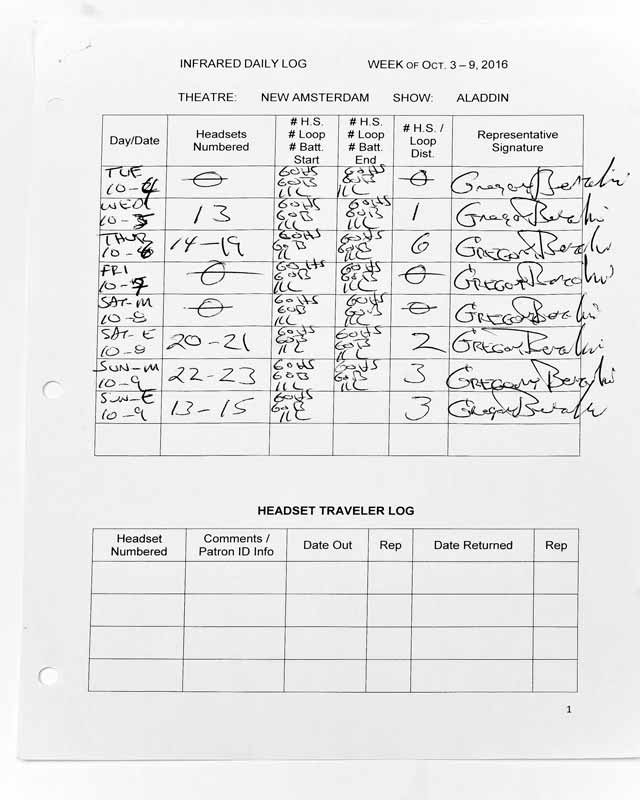 INFRARED DAILY LOG WEEK OF OCT. 3 – 9, 2016
THEATRE: NEW AMSTERDAM SHOW: ALADDIN
Day/Date Headsets Numbered # H.S. # Loop # Batt. Start # H.S. # Loop # Batt. End # H.S. / Loop Dist. Representative Signature
TUE 10-4 0 60HS 60B 1LC 60HS 60B 1LC 0 Gregory
WED 10-5 13 60HS 60B 1LC 60HS 60B 1LC 1 Gregory
THUR 10-6 14-19 60HS 60B 1LC 60HS 60B 1LC 6 GREGORY
FRI 10-7 0 60HS 60B 1LC 60HS 60B 1LC 0 GREGORY
SAT-M 10-8 0 60HS 60B 1LC 60HS 60B 1LC 0 GREGORY
SAT-E 10-8 20-21 60HS 60B 1LC 60HS 60B 1LC 2 GREGORY
SUN-M 10-9 22-23 60HS 60B 1LC 60HS 60B 1LC 3 GREGORY
SUN-E 10-9 13-15 60HS 60B 1LC 3 Gregory
HEADSET TRAVELER LOG
Headset Numbered Comments / Patron ID Info Date Out Rep Date Returned Rep
1